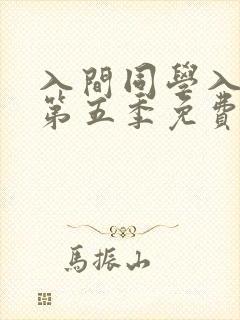 入間同學入
第五季免費
馬振山